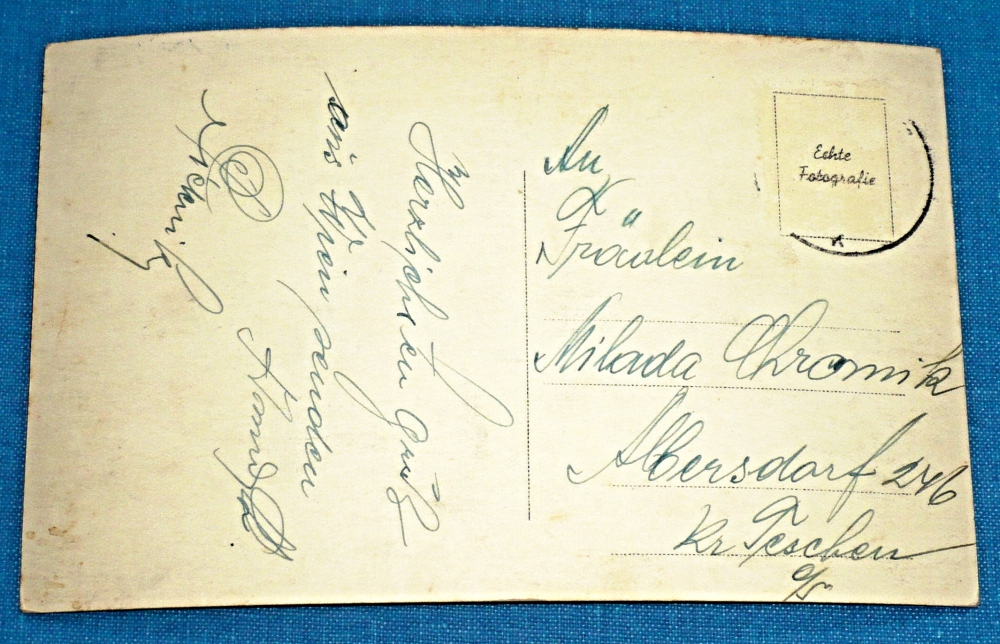 Herzlichen Gruß
aus Wien senden
An
Fräulein
Milada Chromik
Albersdorf 246
Kr Teschen
o/s
Echte
Fotografie